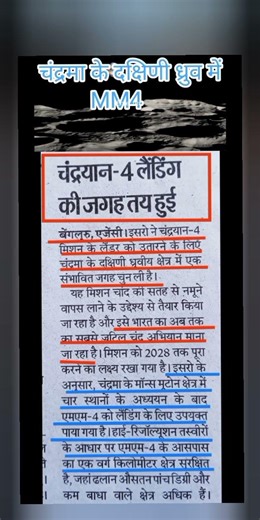 चंद्रमा के दक्षिणी ध्रुव में
MM4
चंद्रयान-4 लैंडिंग
की जगह तय हुई
बेंगलरु, एजेंसी। इसरो ने चंद्रयान-4
मिशन के लैंडर को उतारने के लिएँ
चंद्रमा के दक्षिणी ध्रवीय क्षेत्र में एक
संभावित जगह चुन ली है।
यह मिशन चांद की सतह से नमूने
वापस लाने के उद्देश्य से तैयार किया
जा रहा है और इसे भारत का अब तक
का सबसे जटिल चंद्र अभियान माना
जा रहा है। मिशन को 2028 तक पूरा
करने का लक्ष्य रखा गया है। इसरो के
अनुसार, चंद्रमा के मॉन्स मूटोन क्षेत्र में
चार स्थानों के अध्ययन के बाद
एमएम-4 को लैंडिंग के लिए उपयुक्त
पाया गया है। हाई-रिजॉल्यूशन तस्वीरों
के आधार पर एमएम-4 के आसपास
का एक वर्ग किलोमीटर क्षेत्र सुरक्षित
है, जहां ढलान औसतन पांच डिग्री और
कम बाधा वाले क्षेत्र अधिक हैं।